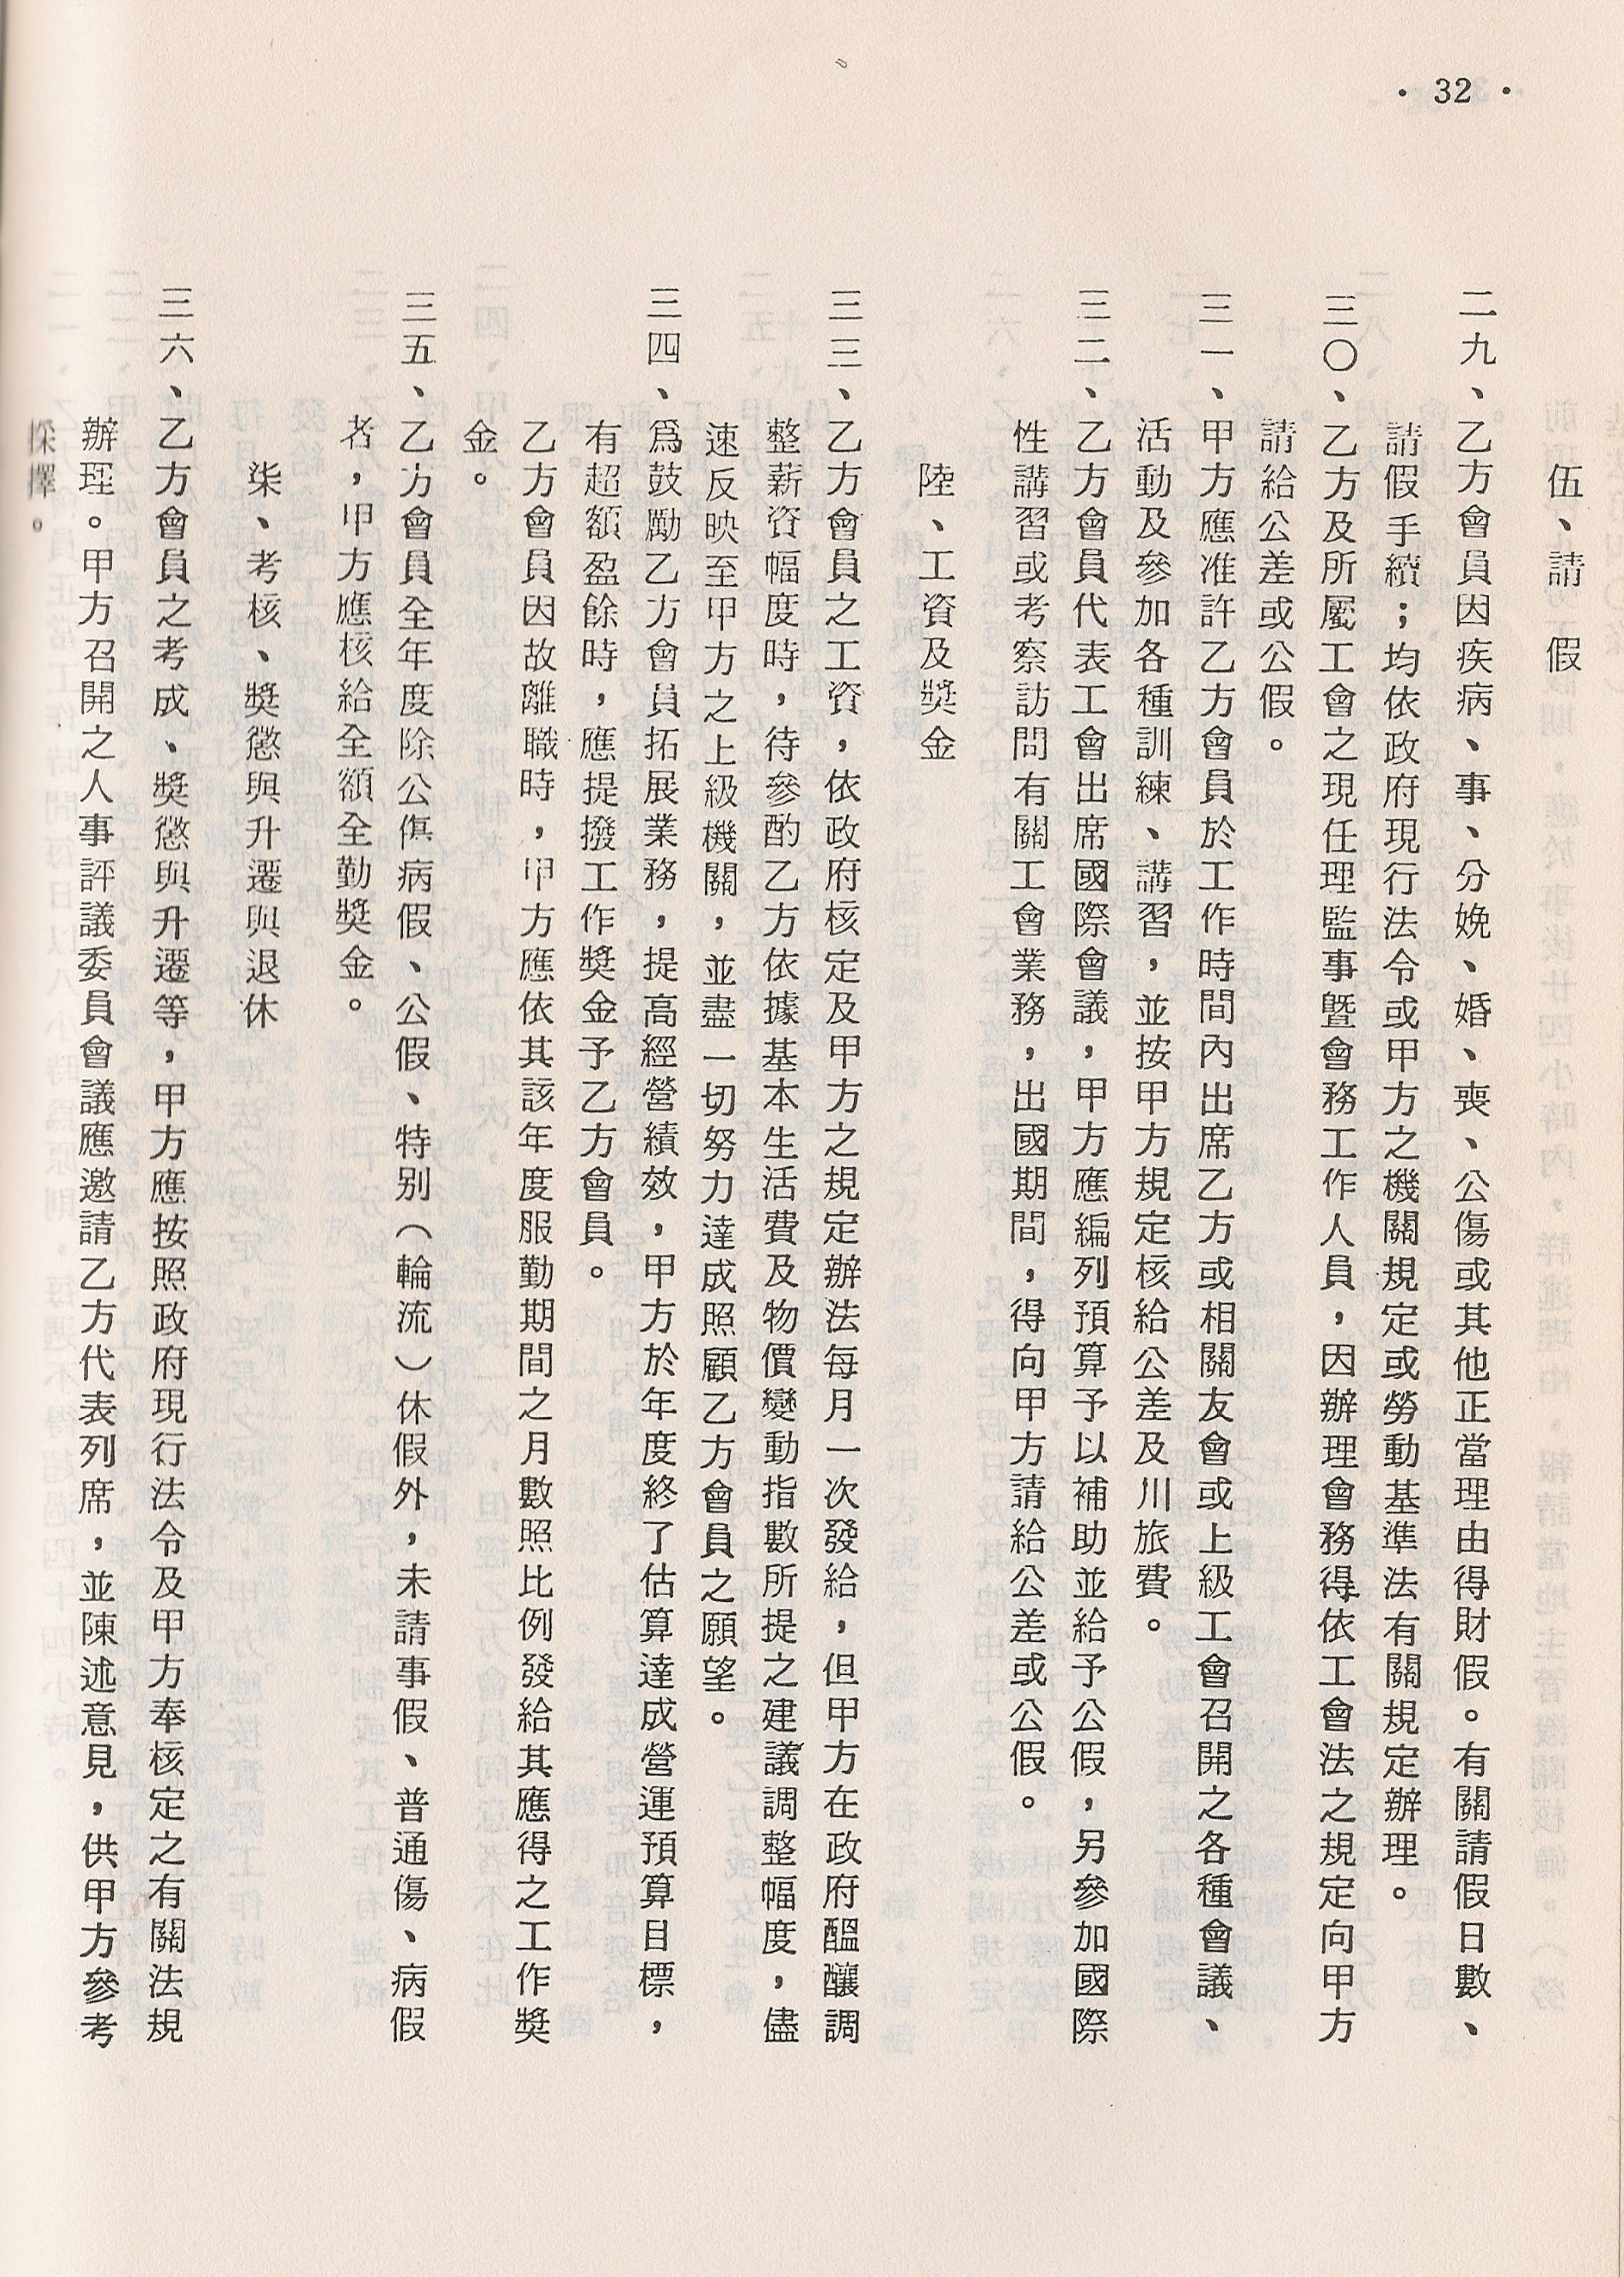 ・32・
伍、請假
二九、乙方會員因疾病、事、分娩、婚、喪、公傷或其他正當理由得財假。有關請假日數、
請假手續；均依政府現行法令或甲方之機關規定或勞動基準法有關規定辦理。
三〇、乙方及所屬工會之現任理監事暨會務工作人員，因辦理會務得依工會法之規定向甲方
請給公差或公假。
三一、甲方應准許乙方會員於工作時間內出席乙方或相關友會或上級工會召開之各種會議、
活動及參加各種訓練、講習，並按甲方規定核給公差及川旅費。
三二、乙方會員代表工會出席國際會議，甲方應編列預算予以補助並給予公假，另參加國際
性講習或考察訪問有關工會業務，出國期間，得向甲方請給公差或公假。
陸、工資及獎金
三三、乙方會員之工資，依政府核定及甲方之規定辦法每月一次發給，但甲方在政府醞釀調
整薪資幅度時，待參酌乙方依據基本生活費及物價變動指數所提之建議調整幅度，儘
速反映至甲方之上級機關，並盡一切努力達成照顧乙方會員之願望。
三四、爲鼓勵乙方會員拓展業務，提高經營績效，甲方於年度終了估算達成營運預算目標，
有超額盈餘時，應提撥工作獎金予乙方會員。
乙方會員因故離職時，甲方應依其該年度服勤期間之月數照比例發給其應得之工作獎
金。
三五、乙方會員全年度除公傷病假、公假、特別（輪流）休假外，未請事假、普通傷、病假
者，甲方應核給全額全勤獎金。
柒、考核、獎懲與升遷與退休
三六、乙方會員之考成、獎懲與升遷等，甲方應按照政府現行法令及甲方奉核定之有關法規
辦理。甲方召開之人事評議委員會議應邀請乙方代表列席，並陳述意見，供甲方參考
採擇。